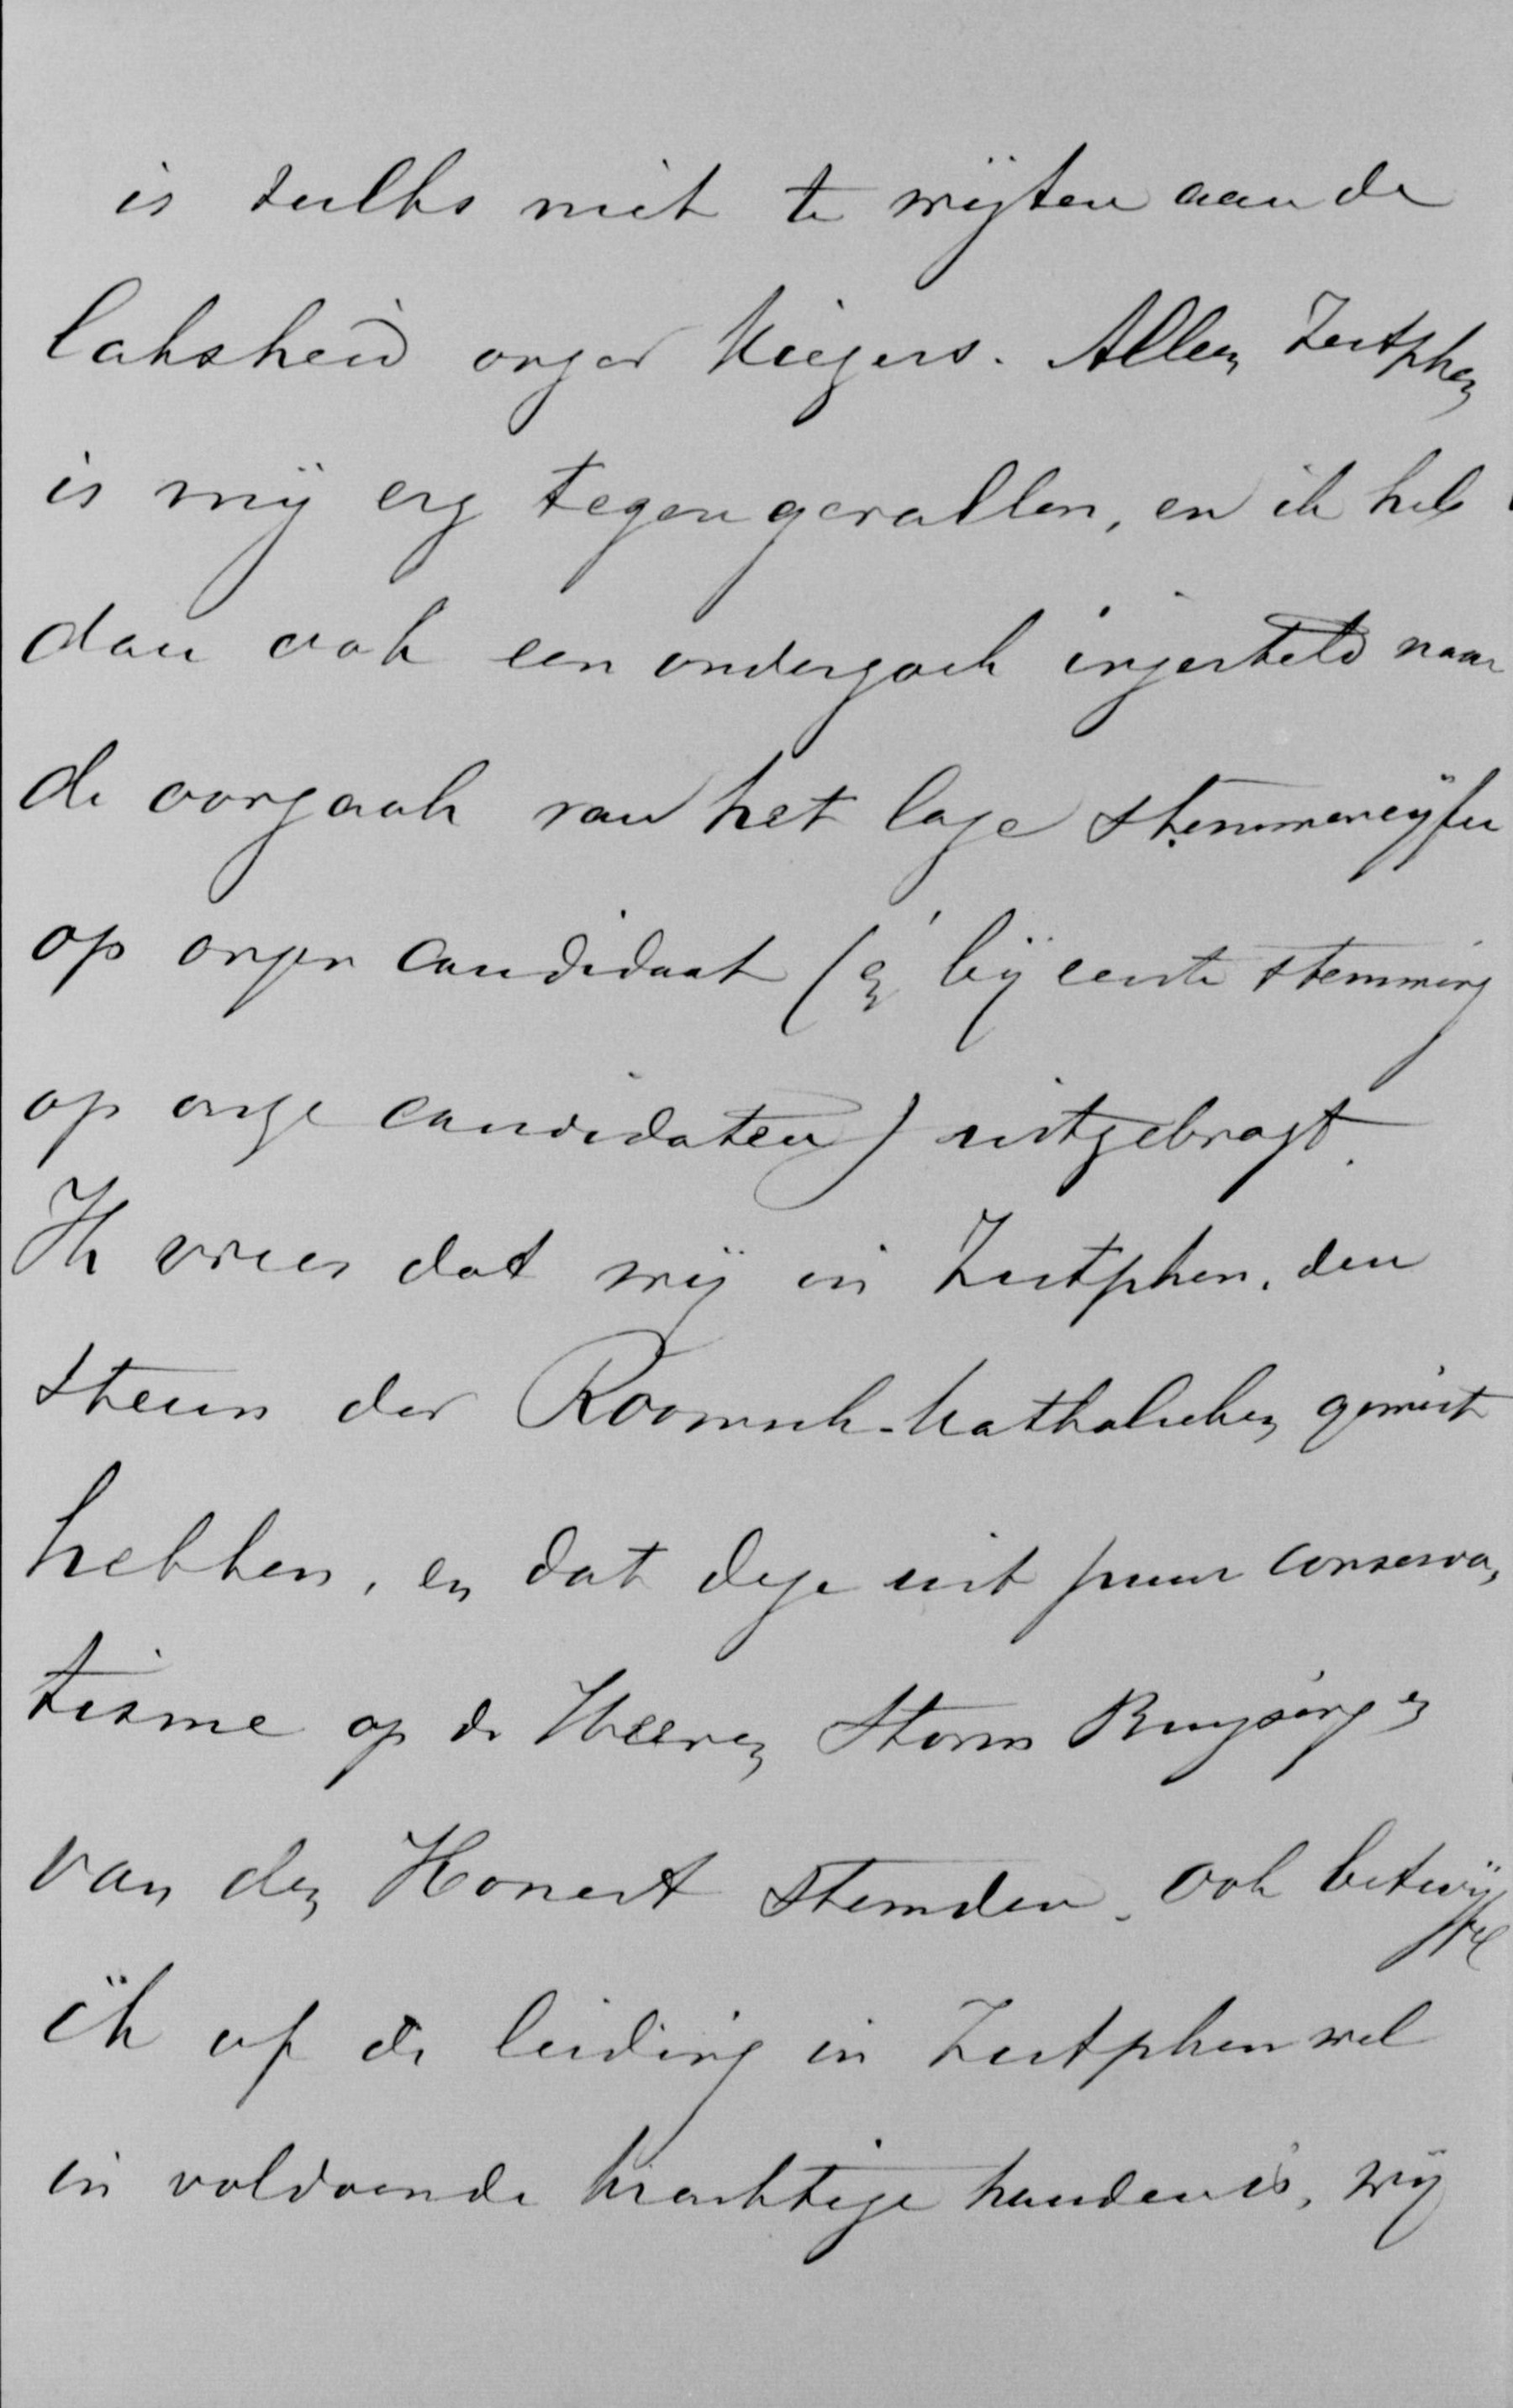 is zulks niet te wijten aan de
laksheid onzer kiezers. Alleen Zutphen
is mij erg tegengevallen, en ik heb
dan ook een onderzoek ingesteld naar
de oorzaak van het lage stemmencijfer
op onzen candidaat (en bij eerste stemming
op onze candidaten) uitgebragt.
Ik vrees dat wij in Zutphen, den
steun der Roomsch-katholieken gemist
hebben, en dat deze uit puur conserva,
tisme op de Heeren Storm Buysing en
van den Honert stemden. Ook betwijfel
ik of de leiding in Zutphen wel
in voldoende krachtige handen is, wij